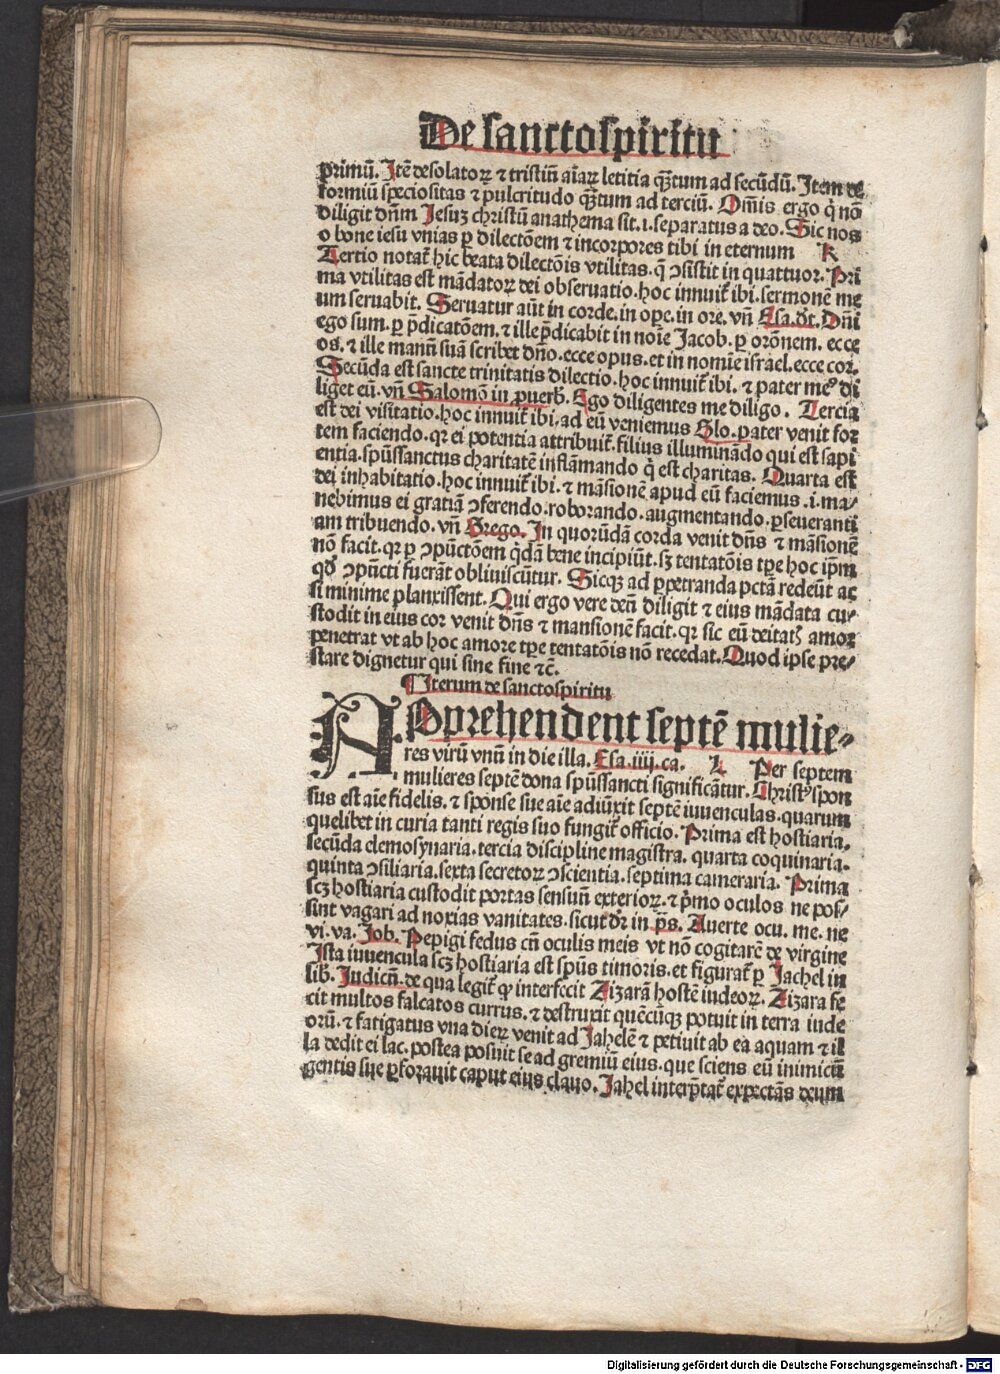 De sanctospiritu
primū. Itē desolatoꝝ ⁊ tristiū aīaꝝ letitia qꝫtum ad secūdū. Item de
formiū speciositas ⁊ pulcritudo qꝫtum ad terciū. Om̄is ergo q̇ nō
diligit dn̄m Jesuꝫ christū anathema sit .i. separatus a deo. Sic nos
o bone iesu vnias ꝑ dilectōem ⁊ incorpores tibi in eternum K
Tertio notat᷑ hic beata dilectōis vtilitas. q̄ ↄsistit in quattuor. Pri
ma vtilitas est mādatoꝝ dei obseruatio. hoc innuit᷑ ibi. sermonē me
um seruabit. Seruatur aūt in corde. in oꝑe. in ore. vn̄ Esa. dt̄. Dn̄i
ego sum. ꝑ p̄dicatōem. ⁊ ille p̄dicabit in noīe Jacob. ꝑ orōnem. ecce
os. ⁊ ille manū suā scribet dn̄o. ecce opus. et in nomīe israel. ecce cor.
Secūda est sancte trinitatis dilectio. hoc innuit᷑ ibi. ⁊ pater meꝰ di
liget eū. vn̄ Salomō in ꝓuerb̄. Ego diligentes me diligo. Tercia
est dei visitatio. hoc innuit᷑ ibi. ad eū veniemus Glo. pater venit for
tem faciendo. qꝛ ei potentia attribuit᷑. filius illuminādo qui est sapi
entia. spūssanctus charitatē inflāmando q̇ est charitas. Quarta est
dei inhabitatio. hoc innuit᷑ ibi. ⁊ māsionē apud eū faciemus .i. ma⸗
nebimus ei gratiā ↄferendo. roborando. augmentando. ꝑseueranti
am tribuendo. vn̄ Grego. In quorūdā corda venit dn̄s ⁊ māsionē
nō facit. qꝛ ꝑ ↄpūctōem q̇dā bene incipiūt. sꝫ tentatōis tꝑe hoc ip̄m
qđ ↄpūcti fuerāt obliuiscūtur. Sicqꝫ ad ꝑpetranda pctā redeūt ac
si minime planxissent. Qui ergo vere deū diligit ⁊ eius mādata cu⸗
stodit in eius cor venit dn̄s ⁊ mansionē facit. qꝛ sic eū deitatꝭ amor
penetrat vt ab hoc amore tꝑe tentatōis nō recedat. Quod ipse pre⸗
stare dignetur qui sine fine ⁊c̄.
Iterum de sanctospiritu
APprehendent septē mulie⸗
res virū vnū in die illa. Esa. iiij. ca. L Per septem
mulieres septē dona spūssancti significātur. Christꝰ spon
sus est aīe fidelis. ⁊ sponse sue aīe adiūxit septē iuuenculas. quarum
quelibet in curia tanti regis suo fungit᷑ officio. Prima est hostiaria.
secūda elemosynaria. tercia discipline magistra. quarta coquinaria.
quinta ↄsiliaria. sexta secretoꝝ ↄscientia. septima cameraria. Prima
scꝫ hostiaria custodit portas sensuū exterioꝝ. ⁊ p̄mo oculos ne pos⸗
sint vagari ad noxias vanitates. sicut dr̄ in ps̄. Auerte ocu. me. ne
vi. va. Job. Pepigi fedus cū oculis meis vt nō cogitarē de virgine
Ista iuuencula scꝫ hostiaria est spūs timoris. et figurat᷑ ꝑ Jachel in
lib. Judicū. de qua legit᷑ ꝙ interfecit Zizarā hostē iudeoꝝ. Zizara fe
cit multos falcatos currus. ⁊ destruxit quēcūqꝫ potuit in terra iude
orū. ⁊ fatigatus vna dieꝝ venit ad Jahelē ⁊ petiuit ab ea aquam ⁊ il
la dedit ei lac. postea posuit se ad gremiū eius. que sciens eū inimicū
gentis sue ꝑforauit caput eius clauo. Jahel interp̄tat᷑ expectās deum
Digitalisierung gefördert durch die Deutsche Forschungsgemeinschaft - DFG